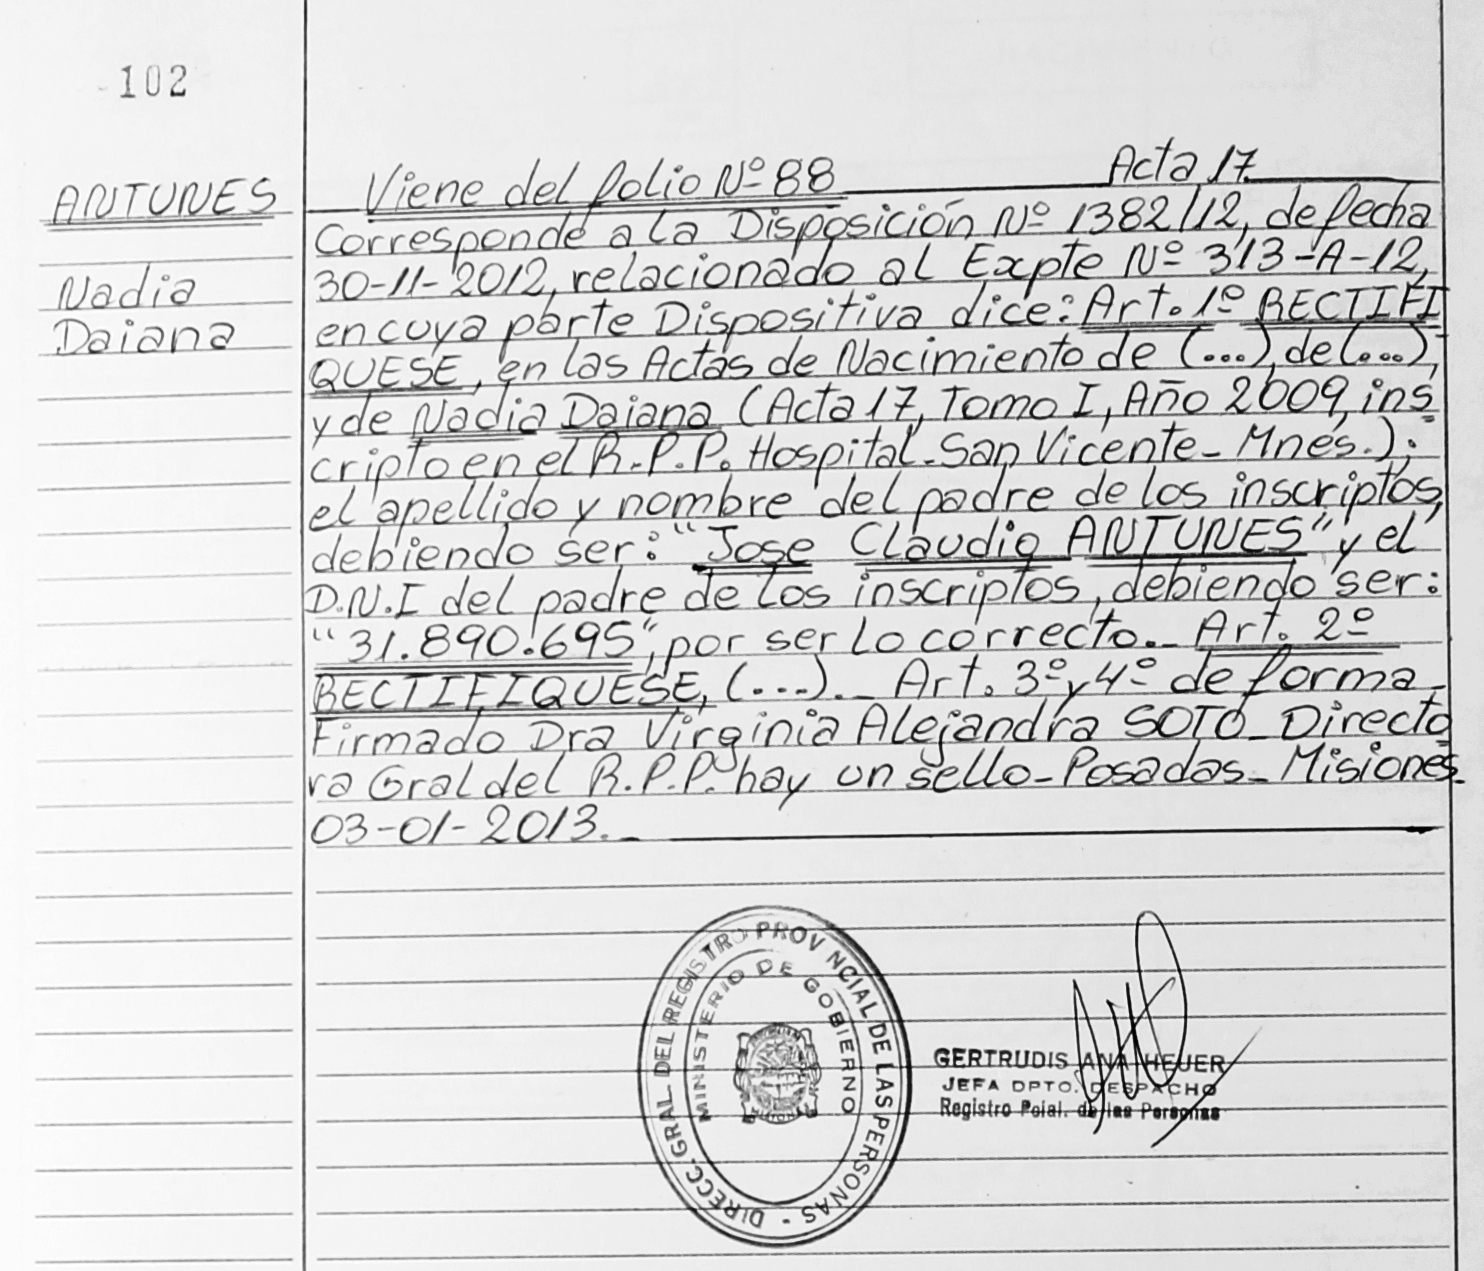 102
ANTUNES
Nadia
Daiana
Viene del folio Nº 88 Acta 17.
Corresponde a la Disposición Nº 1382/12, de fecha
30-11-2012, relacionado al Expte Nº 313-A-12,
en cuya parte Dispositiva dice: Art. 1º RECTIFI
QUESE, en las Actas de Nacimiento de (...), de (...),
y de Nadia Daiana (Acta 17, Tomo I, Año 2009, ins
cripto en el R.P.P. Hospital-San Vicente-Mnes.);
el apellido y nombre del padre de los inscriptos,
debiendo ser: "Jose Claudio ANTUNES" y el
D.N.I del padre de los inscriptos, debiendo ser:
"31.890.695", por ser lo correcto._ Art. 2º
RECTIFIQUESE, (...)._ Art. 3º y 4º de forma_
Firmado Dra Virginia Alejandra SOTO_Directo
ra Gral del R.P.P. hay un sello_Posadas_Misiones_
03-01-2013._
DIRECC. GRAL. DEL REGISTRO PROVINCIAL DE LAS PERSONAS -
MINISTERIO DE GOBIERNO
GERTRUDIS ANA HEUER
JEFA DPTO. DESPACHO
Registro Pcial. de las Personas